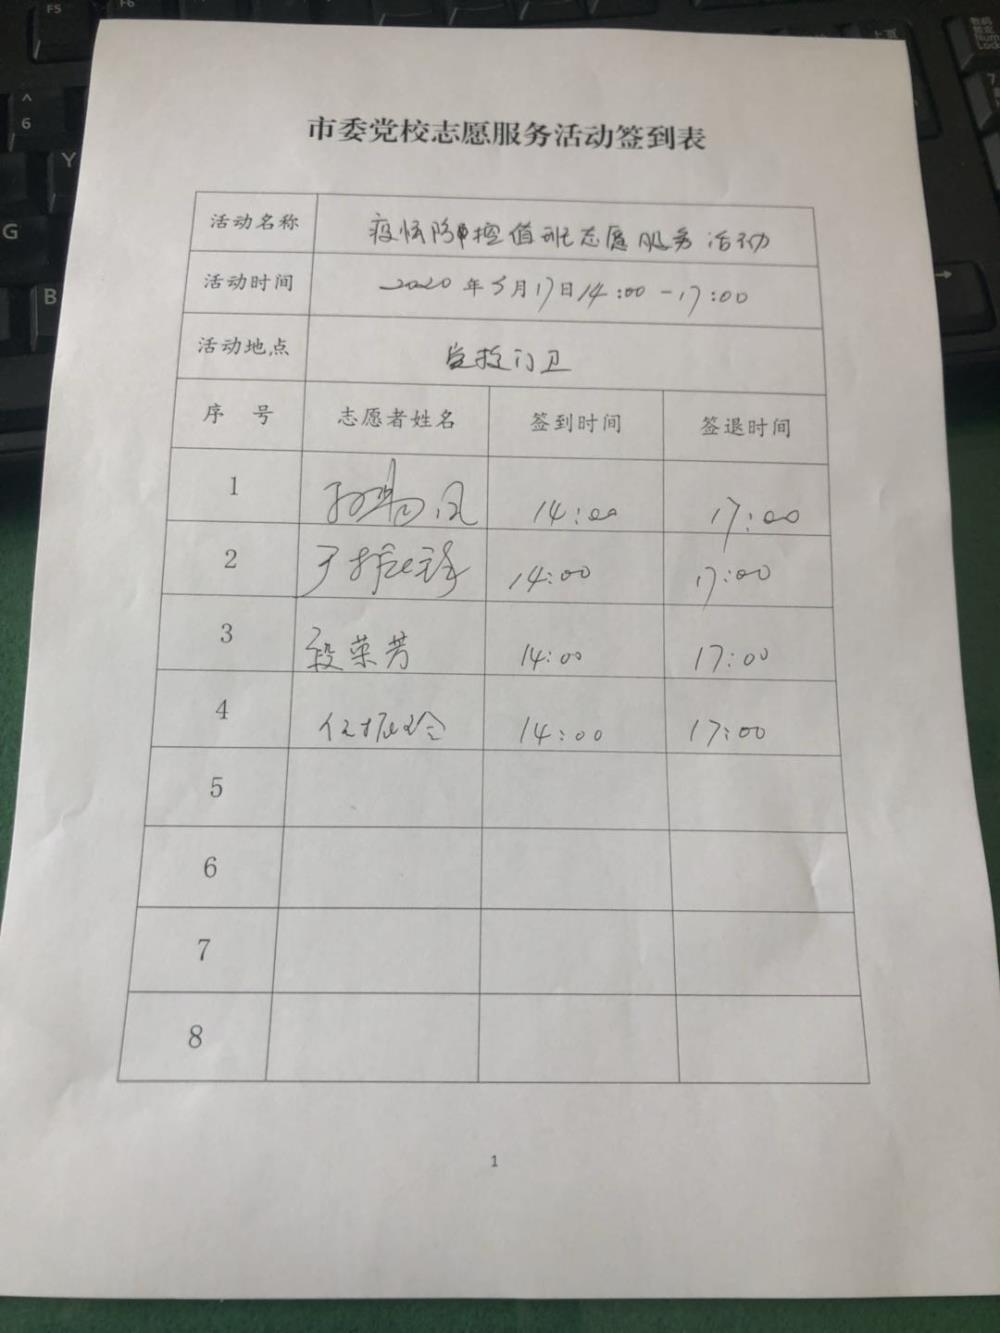 市委党校志愿服务活动签到表
活动名称 疫情防控值班志愿服务活动
活动时间 2020年5月17日14:00-17:00
活动地点 党校门卫
序 号 志愿者姓名 签到时间 签退时间
1 14:00 17:00
2 14:00 17:00
3 段荣芳 14:00 17:00
4 任振玲 14:00 17:00
5
6
7
8
1
F5
F6
^
6
Y
G
B
数码
锁定
Num
Lock
7
上页